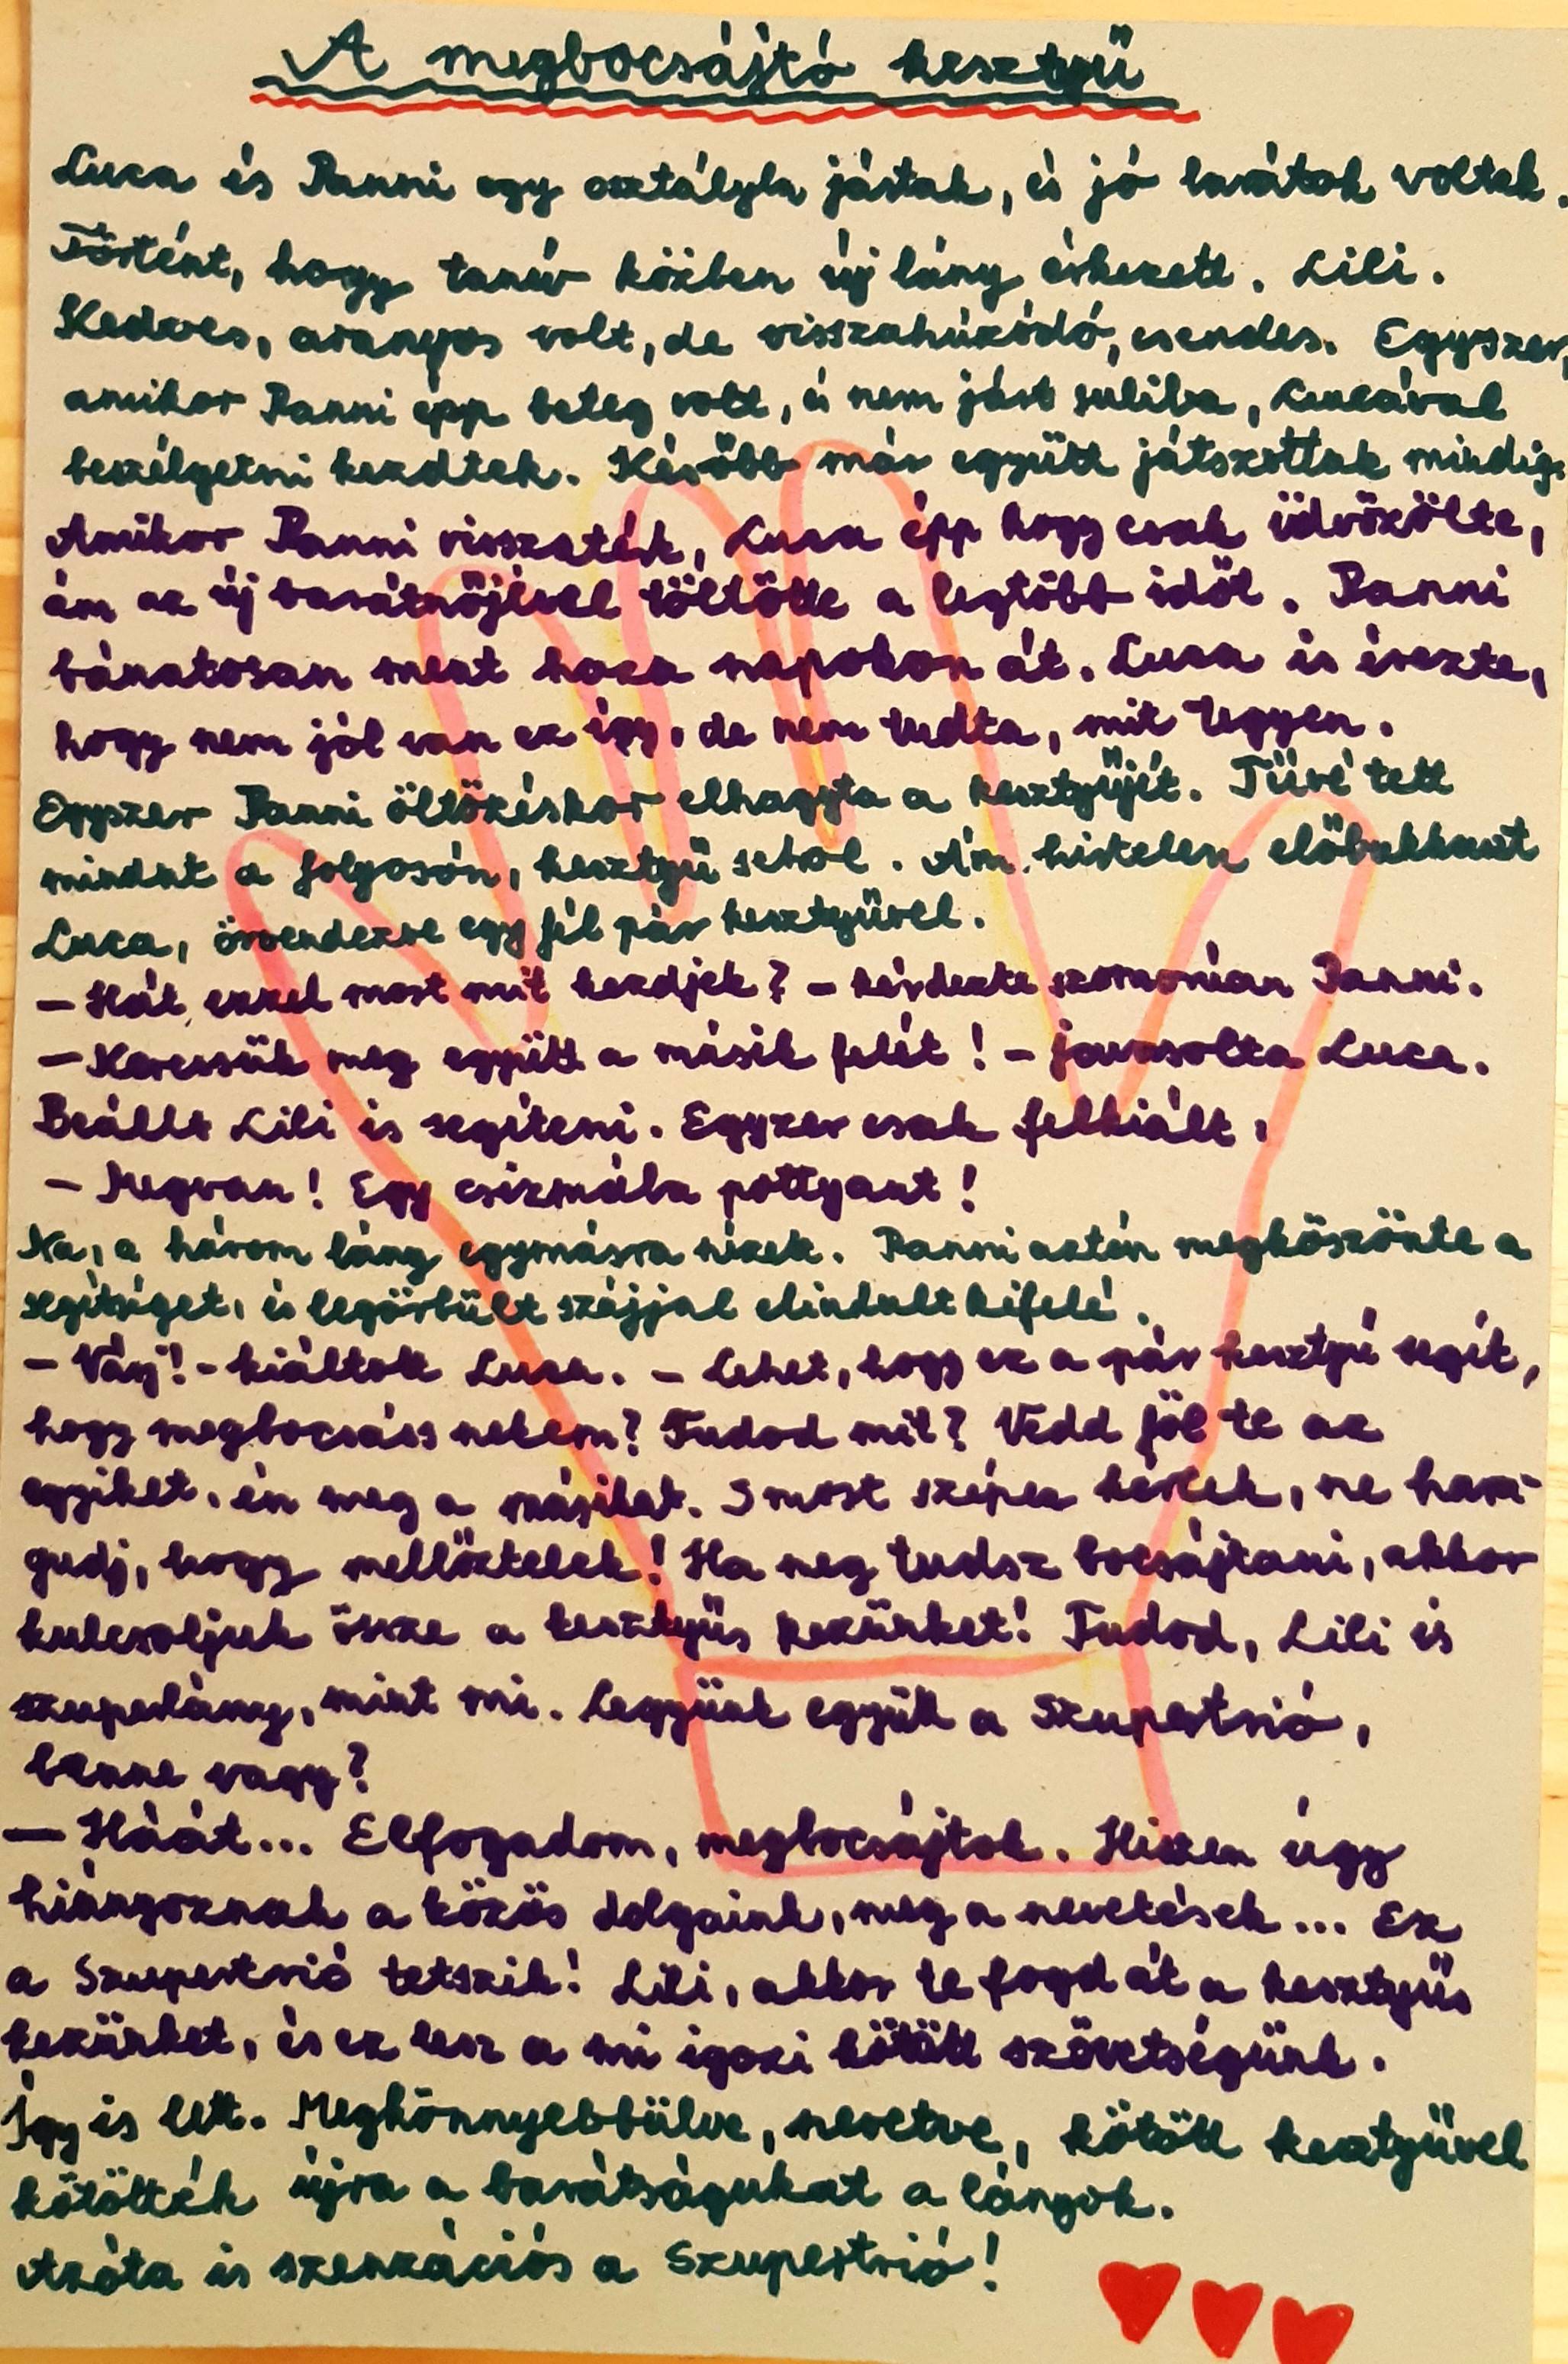 A megbocsájtó kesztyű
Luca és Panni egy osztályba jártak, és jó barátok voltak.
Történt, hogy tanév közben új lány érkezett. Lili.
Kedves, aranyos volt, de visszahúzódó, csendes. Egyszer,
amikor Panni épp beteg volt, és nem járt suliba, Lucával
beszélgetni kezdtek. Később már együtt játszottak mindig.
Amikor Panni visszatért, Luca épp hogy csak üdvözölte,
ám az új barátnőjével töltötte a legtöbb időt. Panni
bánatosan ment haza napokon át. Luca is érezte,
hogy nem jól van ez így, de nem tudta, mit tegyen.
Egyszer Panni öltözéskor elhagyta a kesztyűjét. Tűvé tett
mindent a folyosón, kesztyű sehol. Ám hirtelen előbukkant
Luca, örvendezve egy fél pár kesztyűvel.
– Hát ezzel most mit kezdjek? – kérdezte szomorúan Panni.
– Keressük meg együtt a másik felét! – javasolta Luca.
Beállt Lili is segíteni. Egyszer csak felkiált,
– Megvan! Egy csizmába pottyant!
Na, a három lány egymásra nézett. Panni aztán megköszönte a
segítséget, és legörbült szájjal elindult kifelé.
– Várj! – kiáltott Luca. – Lehet, hogy ez a pár kesztyű segít,
hogy megbocsáss nekem? Tudod mit? Vedd föl te az
egyiket, én meg a másikat. S most szépen kérlek, ne hara-
gudj, hogy mellőztelek! Ha meg tudsz bocsájtani, akkor
kulcsoljuk össze a kesztyűs kezünket! Tudod, Lili is
szuperlány, mint mi. Legyünk együtt a Szupertrió,
benne vagy?
– Háát... Elfogadom, megbocsájtok. Hiszen úgy
hiányoznak a közös dolgaink, meg a nevetések... Ez
a Szupertrió tetszik! Lili, akkor te fogd át a kesztyűs
kezünket, és ez lesz a mi igazi kötött szövetségünk.
Így is lett. Megkönnyebbülve, nevetve, kötött kesztyűvel
kötötték újra a barátságukat a lányok.
Azóta is szenzációs a Szupertrió!